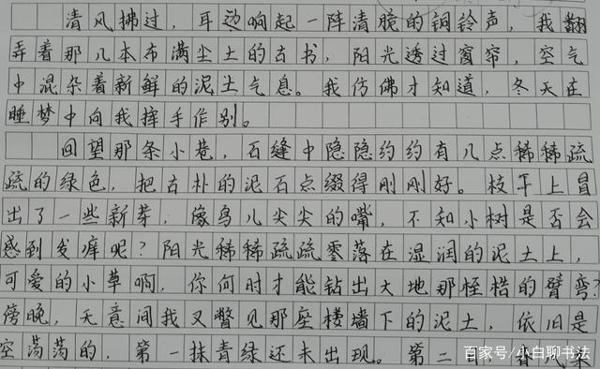 清风拂过，耳边响起一阵清脆的铜铃声，我翻
弄着那几本布满尘土的古书，阳光透过窗帘，空气
中混杂着新鲜的泥土气息。我仿佛才知道，冬天在
睡梦中向我挥手作别。
回望那条小巷，石缝中隐隐约约有几点稀稀疏
疏的绿色，把古朴的泥石点缀得刚刚好。枝干上冒
出了一些新芽，像鸟儿尖尖的嘴，不知小树是否会
感到发痒呢？阳光稀稀疏疏零落在湿润的泥土上，
可爱的小草啊，你何时才能钻出大地那桎梏的臂弯？
傍晚，无意间我又瞥见那座楼墙下的泥土，依旧是
空荡荡的，第一抹青绿还未出现。第二
百家号/小白聊书法